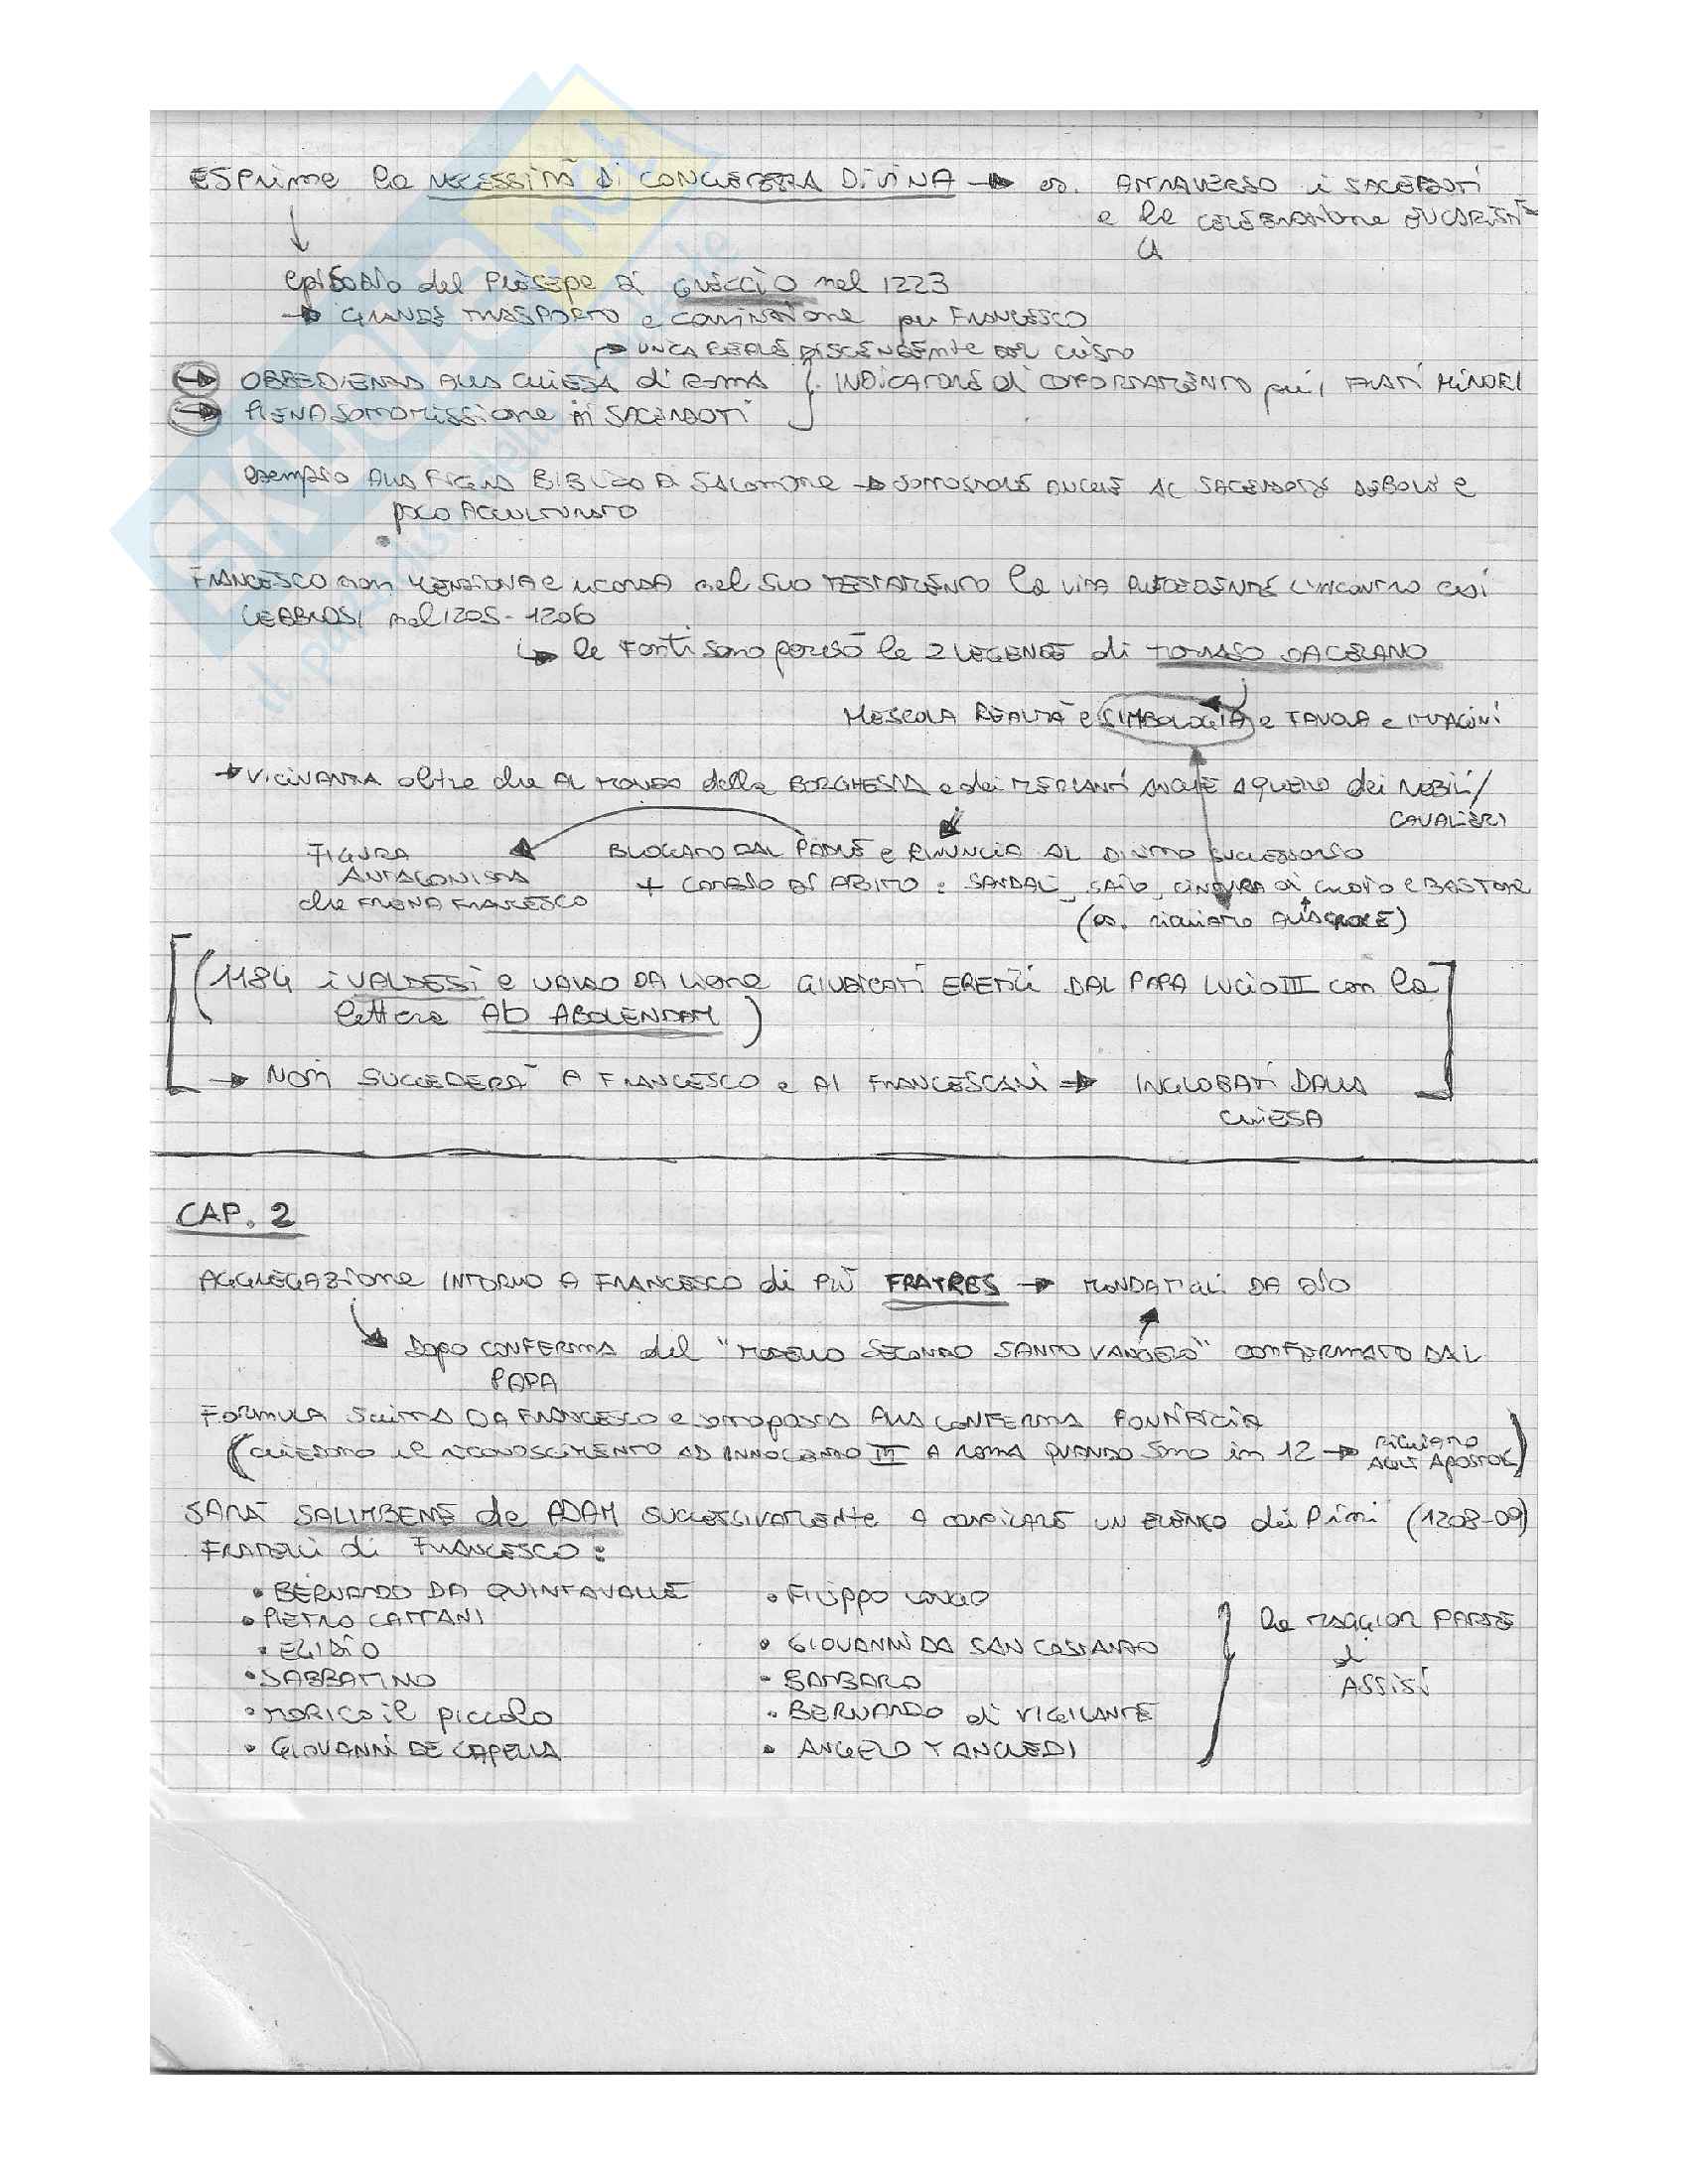 ESPRIME la NECESSITÀ DI CONCRETEZZA DIVINA → es. ATTRAVERSO i SACERDOTI
e la CELEBRAZIONE EUCARISTI
CA
EPISODIO del PRESEPE di GRECCIO nel 1223
→ GRANDE TRASPORTO e COMMOZIONE per FRANCESCO
→ UNICA REALE DISCENDENTE DAL CRISTO
→ OBBEDIENZA ALLA CHIESA di ROMA } INDICATORE di COMPORTAMENTO per i FRATI MINORI
→ PIENA SOTTOMISSIONE AI SACERDOTI
esempio ALLA FIGURA BIBLICA DI SALOMONE → SOTTOSTARE ANCHE AL SACERDOTE DEBOLE e
poco ACCULTURATO
FRANCESCO non MENZIONA e RICORDA nel SUO TESTAMENTO la VITA PRECEDENTE L'INCONTRO coi
LEBBROSI nel 1205-1206
↳ le FONTI sono perciò le 2 LEGENDE di TOMASO DA CELANO
MESCOLA REALTÀ e SIMBOLOGIA e TAVOLA e IMMAGINI
→ VICINANZA oltre che AL MONDO della BORGHESIA e dei MERCANTI ANCHE A QUELLO dei NOBILI/
CAVALIERI
FIGURA
ANTAGONISTA
che FRENA FRANCESCO
BLOCCATO DAL PADRE e RINUNCIA AL DIRITTO SUCCESSORIO
+ CAMBIO DI ABITO: SANDALI, SAIO, CINTURA di CUOIO e BASTONE
(es. richiamo ALLA CROCE)
(1184 i VALDESI e VALDO DA LIONE GIUDICATI ERETICI DAL PAPA LUCIO III con la
lettera Ab ABOLENDAM)
→ NON SUCCEDERÀ A FRANCESCO e AI FRANCESCANI → INGLOBATI DALLA
CHIESA
CAP. 2
AGGREGAZIONE INTORNO A FRANCESCO di PIÙ FRATRES → MANDATIGLI DA DIO
DOPO CONFERMA del "MODELLO SECONDO SANTO VANGELO" CONFERMATO DAL
PAPA
FORMULA SCRITTA DA FRANCESCO e SOTTOPOSTA ALLA CONFERMA PONTIFICIA
(CHIEDONO il RICONOSCIMENTO AD INNOCENZO III A ROMA QUANDO SONO in 12 → RICHIAMO
AGLI APOSTOLI)
SARÀ SALIMBENE de ADAM SUCCESSIVAMENTE A COMPILARE UN ELENCO dei PRIMI (1208-09)
FRATELLI di FRANCESCO:
• BERNARDO DA QUINTAVALLE
• PIETRO CATTANI
• EGIDIO
• SABBATINO
• MORICO il piccolo
• GIOVANNI DE CAPELLA
• FILIPPO LONGO
• GIOVANNI DA SAN COSTANZO
- BARBARO
• BERNARDO di VIGILANTE
• ANGELO TANCREDI
la MAGGIOR PARTE
di
ASSISI